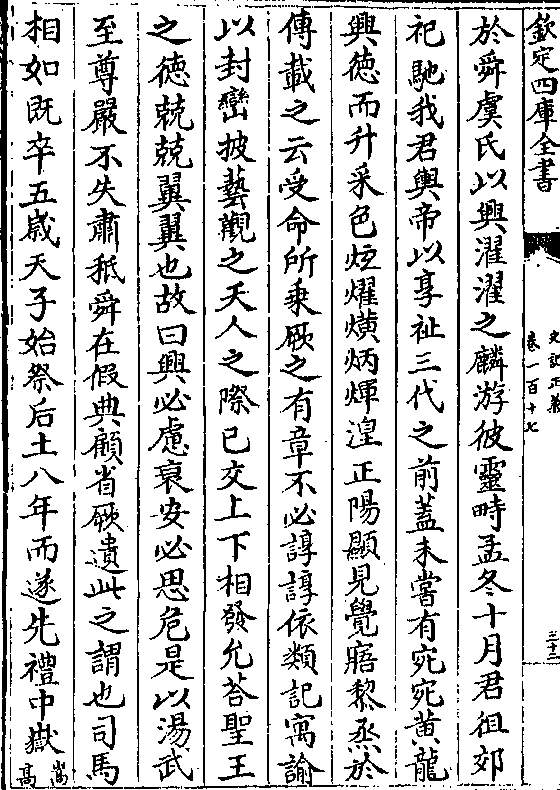 欽定四庫全書
史記正義
卷一百十七
三十二
於舜虞氏以興濯濯之麟游彼靈畤孟冬十月君徂郊
祀馳我君輿帝以享祉三代之前蓋未嘗有宛宛黃龍
興德而升采色炫燿熿炳煇煌正陽顯見覺寤黎烝於
傳載之云受命所乗厥之有章不必諄諄依類記寓諭
以封巒披藝觀之天人之際已交上下相發允荅聖王
之徳兢兢翼翼也故曰興必慮衰安必思危是以湯武
至尊嚴不失肅祗舜在假典顧省厥遺此之謂也司馬
相如既卒五歲天子始祭后土八年而遂先禮中嶽嵩高